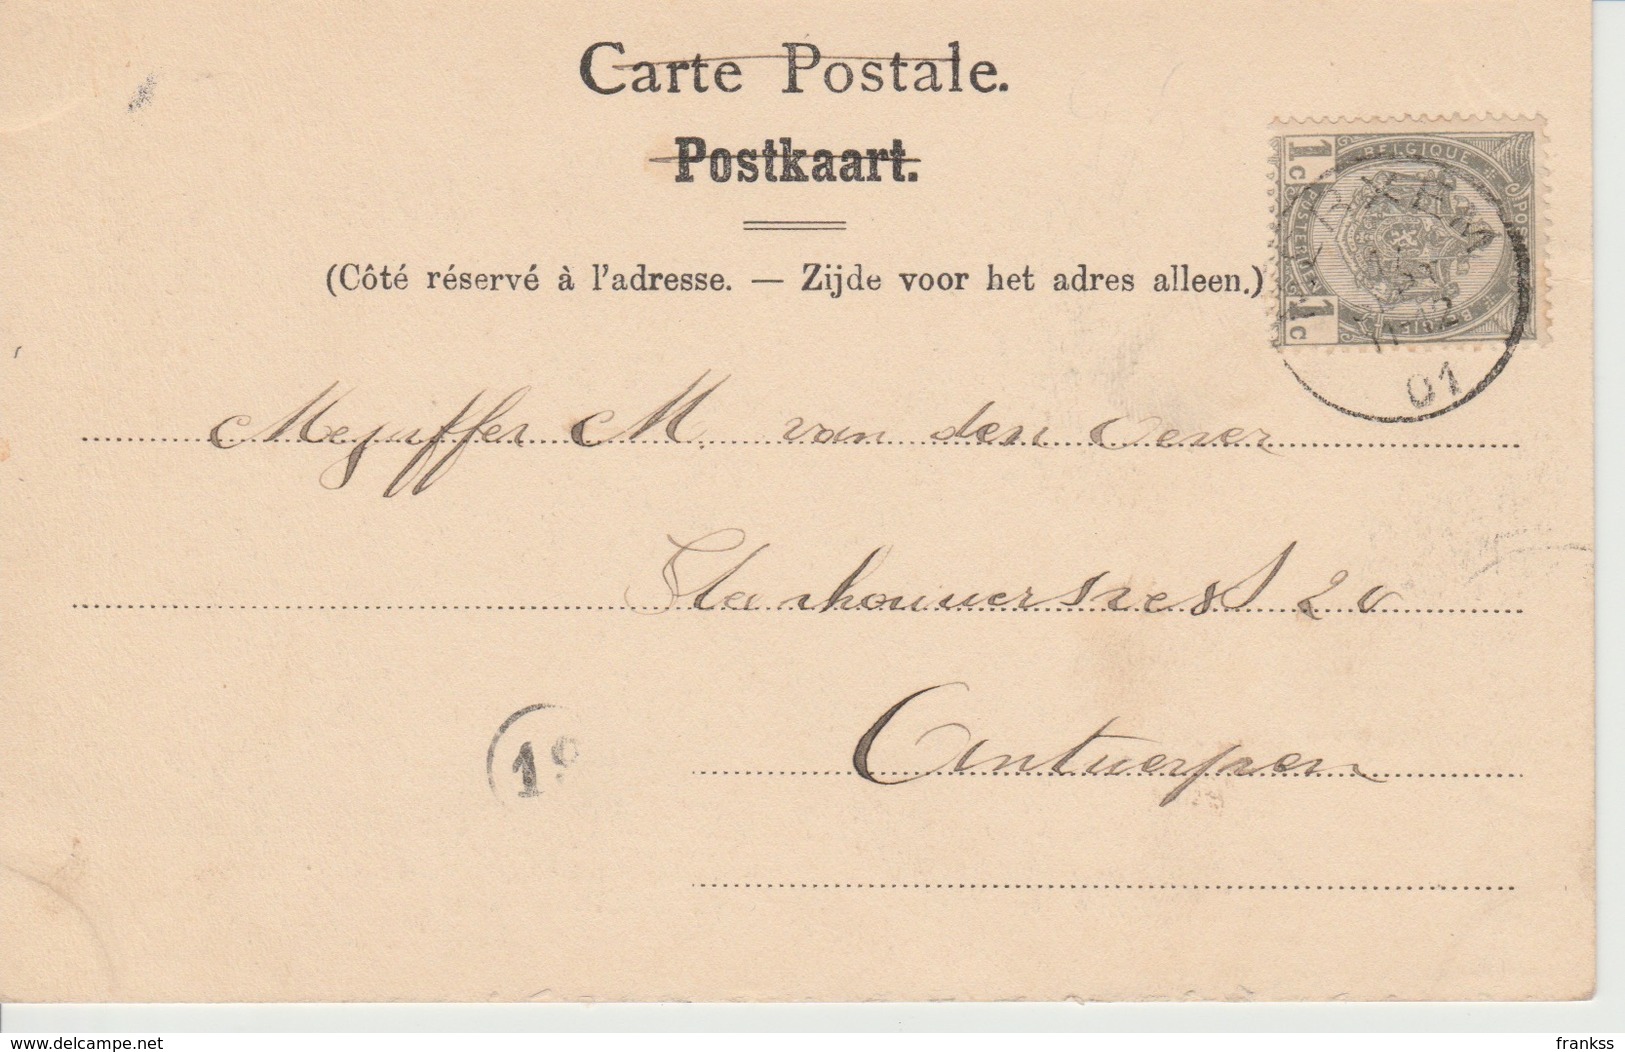 Carte Postale.
Postkaart.
(Côté réservé à l'adresse. — Zijde voor het adres alleen.)
1c BELGIQUE
1c BELGIE
11-12
01
Mejuffer M. van den Oever
Steenhouwersvest 20
Antwerpen
delcampe.net
frankss